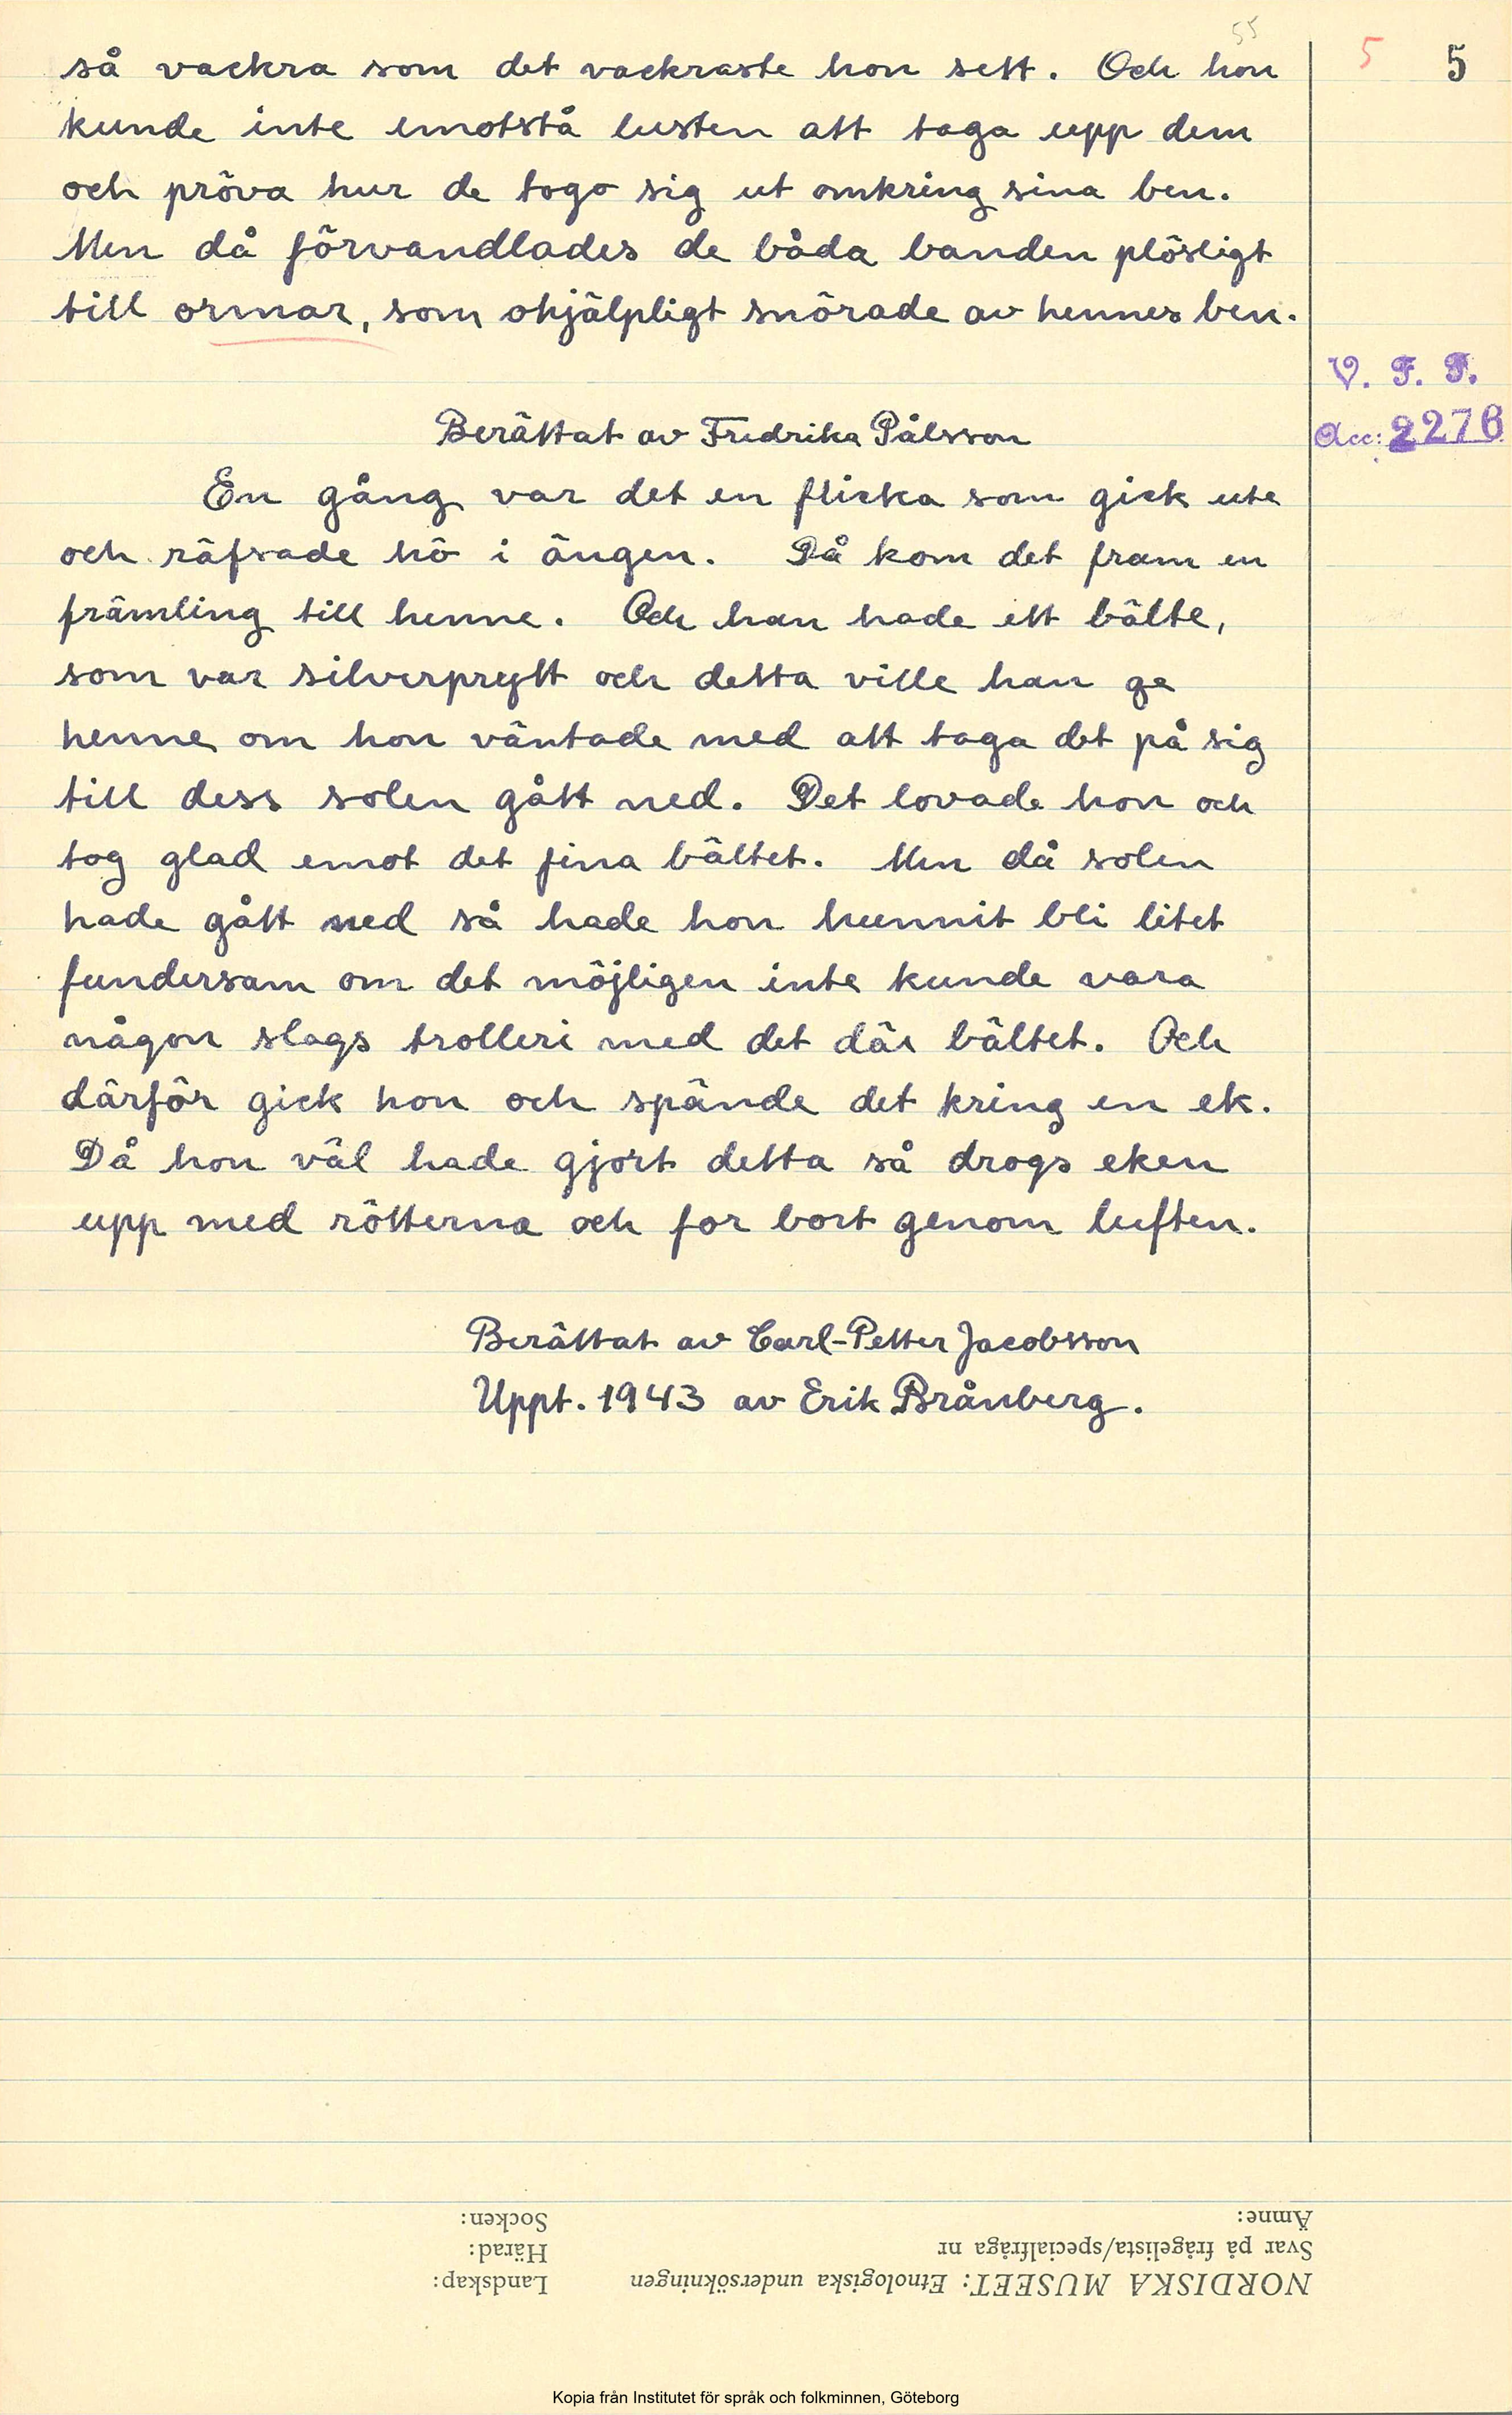 55
5 5
så vackra som det vackraste hon sett. Och hon
kunde inte emotstå lusten att taga upp dem
och pröva hur de togo sig ut omkring sina ben.
Men då förvandlades de båda banden plösligt
till ormar, som ohjälpligt snörade av hennes ben.
V. F. F.
Acc: 2276
Berättat av Fredrika Pålsson
En gång var det en flicka som gick ute
och räfsade hö i ängen. Då kom det fram en
främling till henne. Och han hade ett bälte,
som var silverprytt och detta ville han ge
henne om hon väntade med att taga det på sig
till dess solen gått ned. Det lovade hon och
tog glad emot det fina bältet. Men då solen
hade gått ned så hade hon hunnit bli litet
fundersam om det möjligen inte kunde vara
någon slags trolleri med det där bältet. Och
därför gick hon och spände det kring en ek.
Då hon väl hade gjort detta så drogs eken
upp med rötterna och for bort genom luften.
Berättat av Carl-Petter Jacobsson
Uppt. 1943 av Erik Brånberg.
NORDISKA MUSEET: Etnologiska undersökningen
Svar på frågelista/specialfråga nr
Ämne:
Landskap:
Härad:
Socken:
Kopia från Institutet för språk och folkminnen, Göteborg